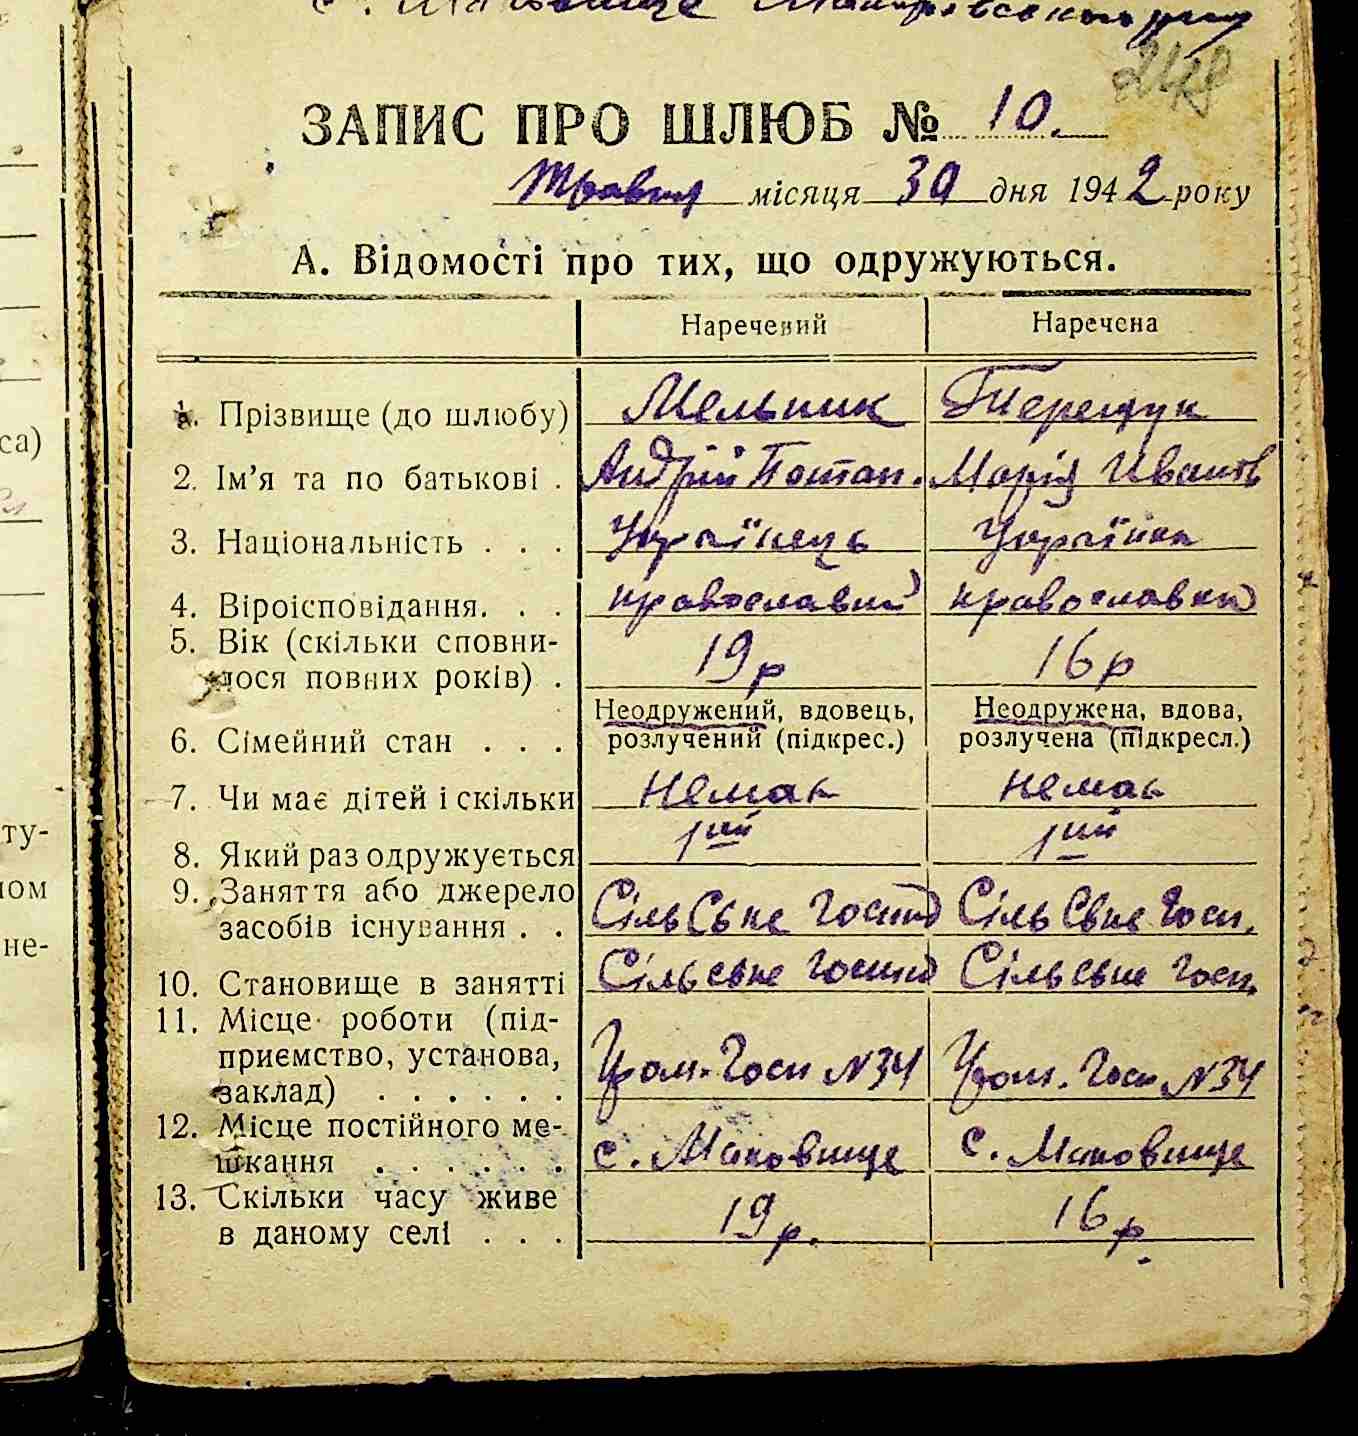 с. Маковище Макарівського р-ну
248
ЗАПИС ПРО ШЛЮБ № 10.
Травня місяця 30 дня 1942 року
А. Відомості про тих, що одружуються.
Наречений Наречена
1. Прізвище (до шлюбу) Мельник Терещук
2. Ім’я та по батькові . Андрій Потап. Марія Иванов
3. Національність . . . Українець Українка
4. Віроісповідання. . . православний православна
5. Вік (скільки сповни-
лося повних років) . 19 р 16 р
Неодружений, вдовець, Неодружена, вдова,
6. Сімейний стан . . . розлучений (підкрес.) розлучена (підкресл.)
7. Чи має дітей і скільки Немає Немає
8. Який раз одружується 1ший 1ший
9. Заняття або джерело
засобів існування . . Сільське Господ Сільське Госп.
10. Становище в занятті Сільське Господ Сільське Госп.
11. Місце роботи (під-
приємство, установа,
заклад) . . . . . . Гром. Госп N34 Гром. Госп N34
12. Місце постійного ме-
шкання . . . . . . с. Маковище с. Маковище
13. Скільки часу живе
в даному селі . . . 19 р. 16 р.
са)
ту-
ном
не-